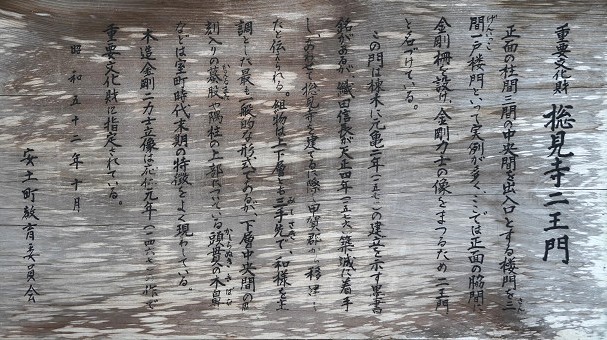 重要文化財 摠見寺二王門
正面の柱間三間の中央間を出入口とする楼門を三
間一戸楼門といって実例が多く、ここでは正面の脇間に
金剛柵を設け、金剛力士の像をまつるため二王門
と名づけている。
この門は棟木に元亀二年(一五七一)の建立を示す
銘があるが、織田信長が天正四年(一五七六)築城に着手
し、あわせて摠見寺を建てる際に甲賀郡から移建し
たと伝えられる。組物は上下層とも三手先で、和様を主
調とした最も一般的な形式であるが、下層中央間の
彫刻入りの蟇股や隅柱の上部についている頭貫の木鼻
などは室町時代末期の特徴をよく現わしている。
木造金剛二力士立像は応仁元年(一四六七)の作で
重要文化財に指定されている。
昭和五十二年十月
安土町教育委員会